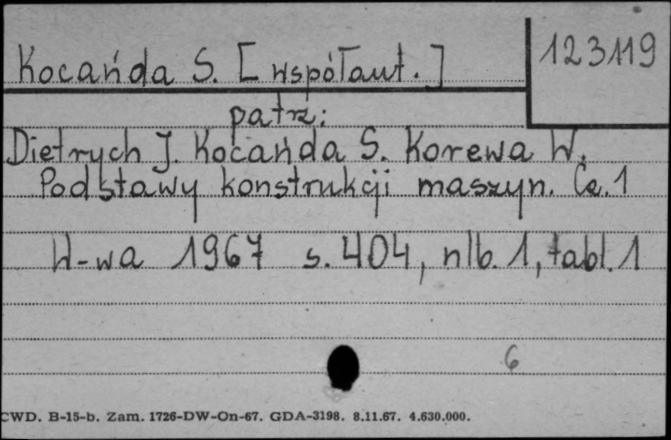 Kocańda S. [współaut.]
123119
patrz:
Dietrych J. Kocańda S. Korewa W.
Podstawy konstrukcji maszyn. Cz. 1
W-wa 1967 s. 404, nlb. 1, tabl. 1
6
CWD. B-15-b. Zam. 1726-DW-On-67. GDA-3198. 8.11.67. 4.630.000.